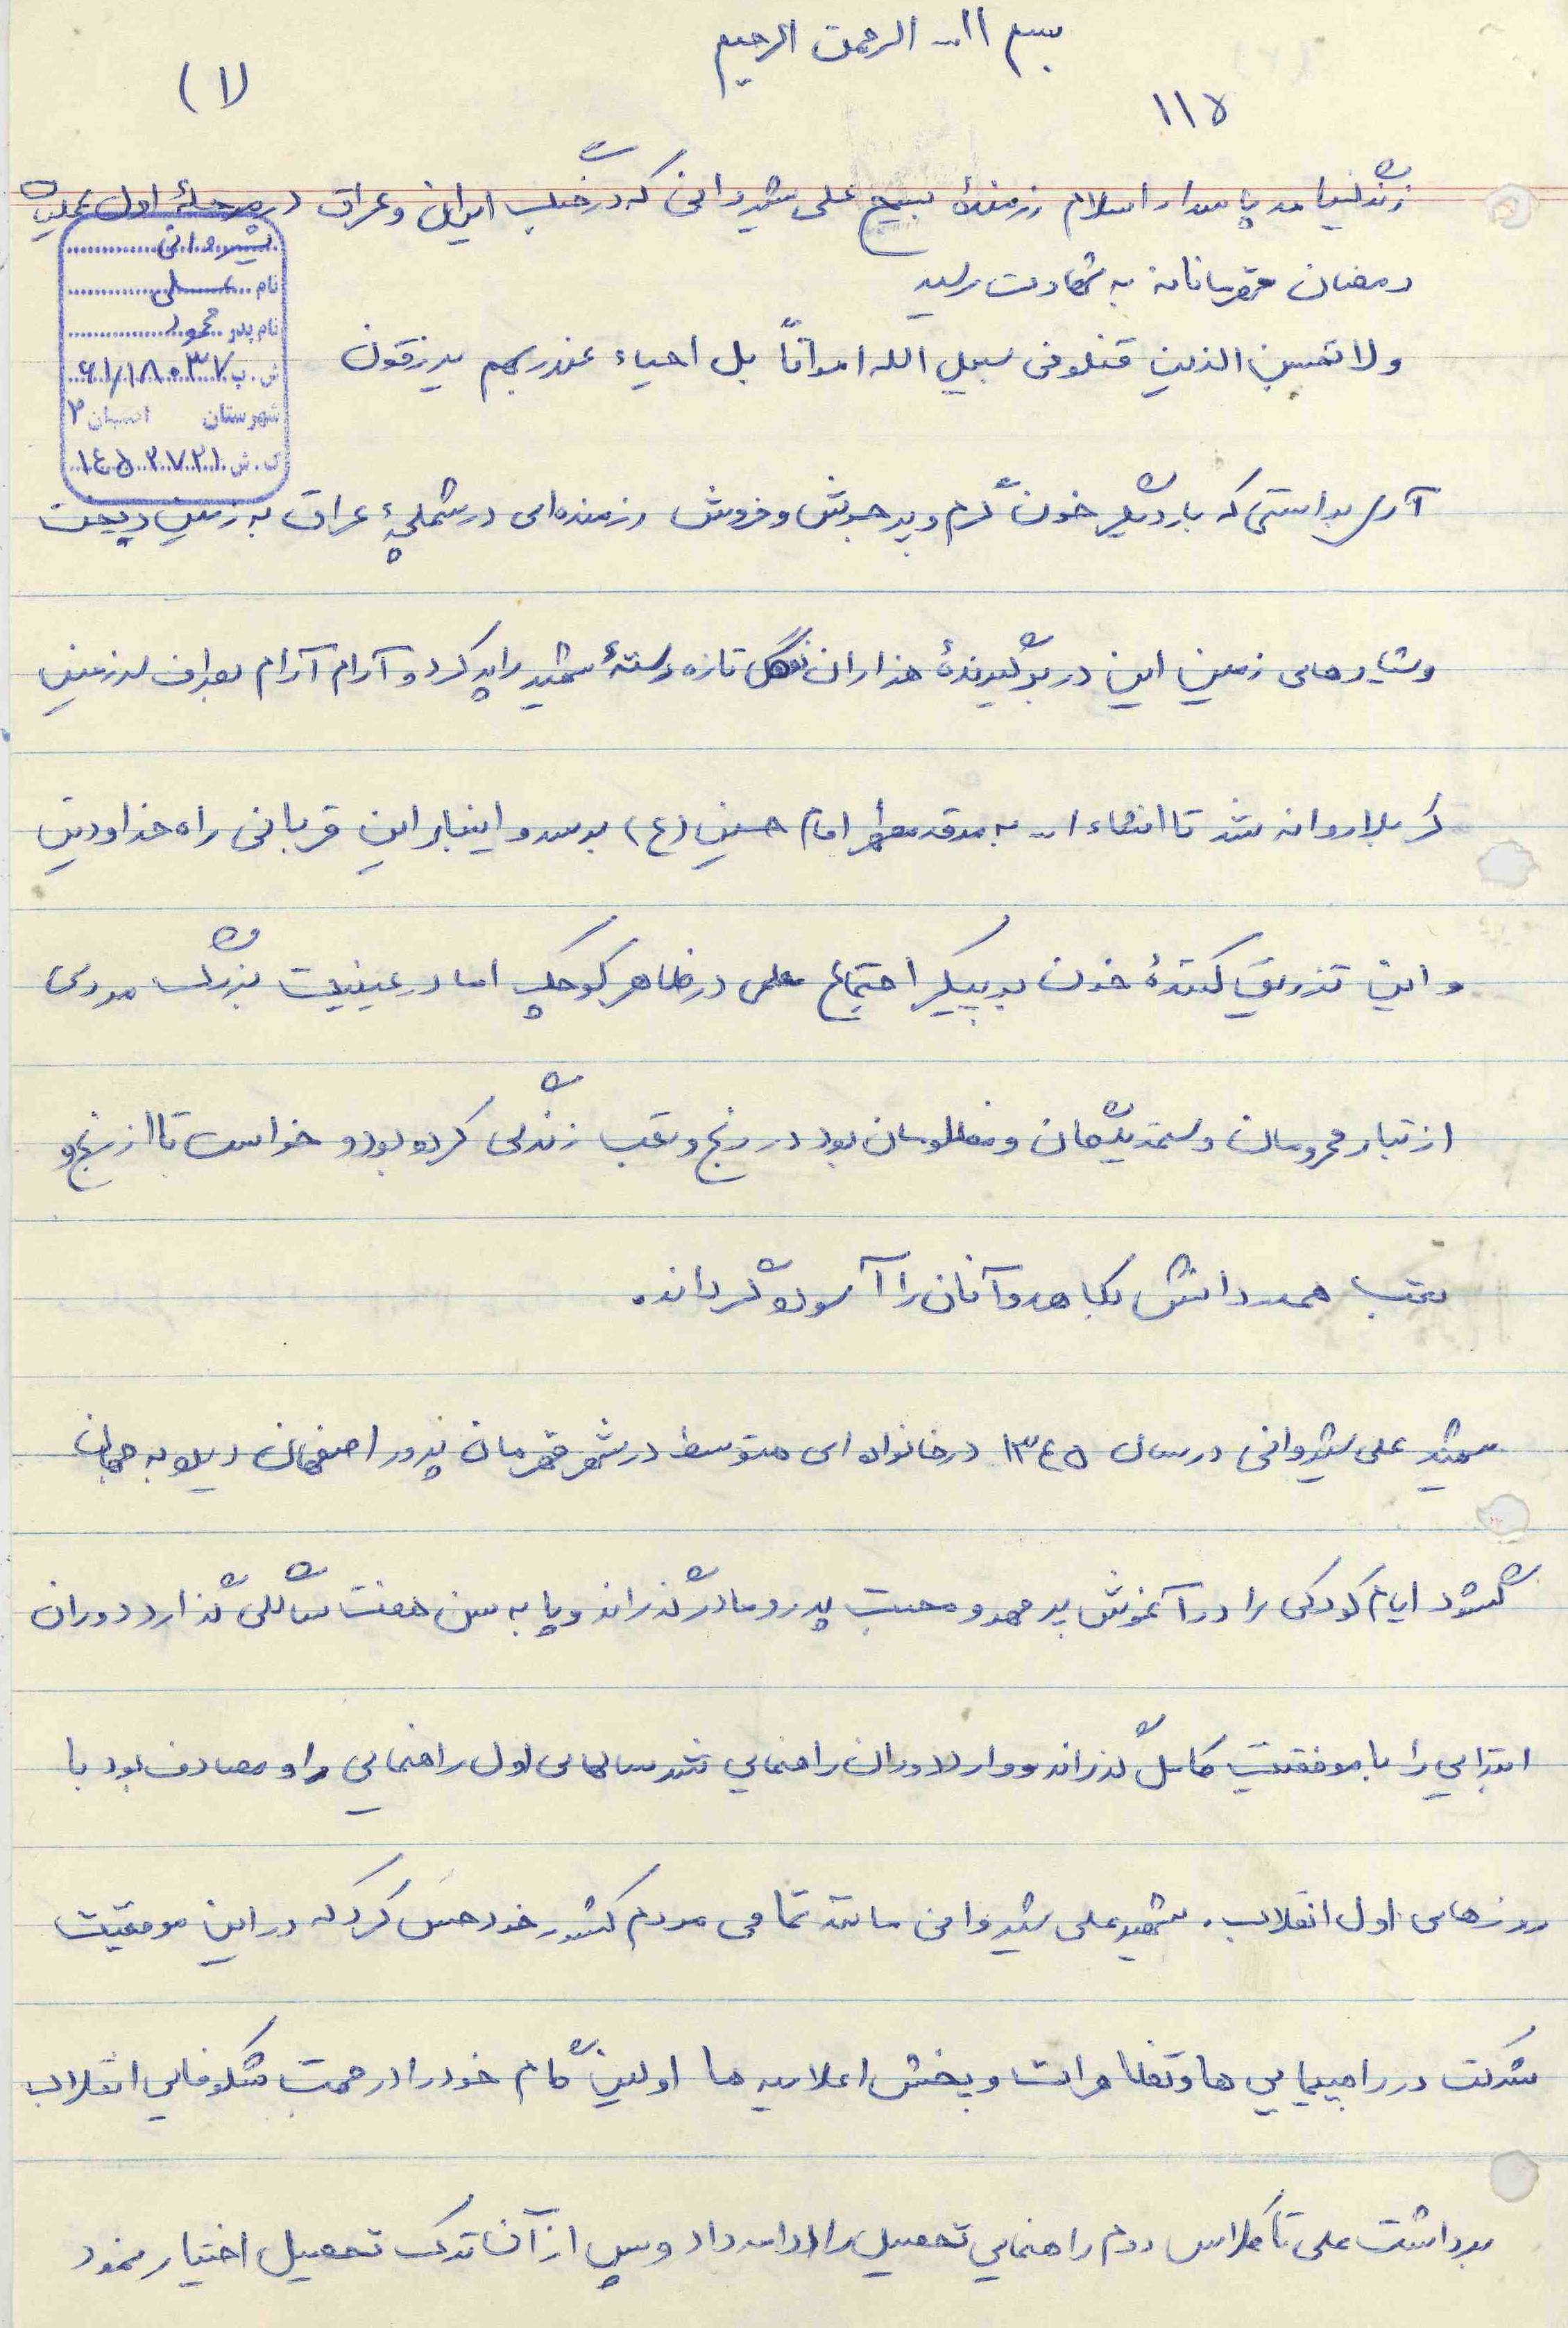 بسم ا... الرحمن الرحیم
(۱)
۱۱۵
زندگینامه پاسدار اسلام رزمندهٔ بسیج علی شیروانی که در جنگ ایران و عراق در مرحلهٔ اول عملیات
رمضان قهرمانانه به شهادت رسید
ولا تحسبن الذین قتلو فی سبیل الله امواتاً بل احیاء عند ربهم یرزقون
شیروانی
نام علی
نام پدر محمود
ش.پ ۶۱/۱۸۰۳۷
شهرستان اصفهان ۲
ک.ش ۱۴۵۲۷۲۱
آری براستی که بار دیگر خون گرم و پر جوش و خروش رزمنده‌ای در شلمچهٔ عراق به زمین ریخت
و شیارهای زمین این در بر گیرندهٔ هزاران گل تازه رستهٔ شهید را پر کرد و آرام آرام بطرف سرزمین
کربلا روانه شد تا انشاء ا... به مرقد مطهر امام حسین (ع) برسد و اینبار این قربانی راه خدا و دین
و این تزریق کنندهٔ خون بر پیکر اجتماع علی در ظاهر کوچک اما در عینیت بزرگ مردی
از تبار محرومان و ستمدیدگان و مظلومان بود در رنج و تعب زندگی کرده بود و خواست تا از رنج و
تعب همدردانش بکاهد و آنان را آسوده گرداند.
شهید علی شیروانی در سال ۱۳۴۵ در خانواده ای متوسط در شهر قهرمان پرور اصفهان دیده به جهان
گشود ایام کودکی را در آغوش پر مهر و محبت پدر و مادر گذراند و پا به سن هفت سالگی گذارد دوران
ابتدایی را با موفقیت کامل گذراند و وارد دوران راهنمایی شد سالهای اول راهنمایی او مصادف بود با
روزهای اول انقلاب. شهید علی شیروانی مانند تمامی مردم کشور خود حس کرد که در این موقعیت
شرکت در راهپیمایی ها و تظاهرات و پخش اعلامیه ها اولین گام خود را در جهت شکوفایی انقلاب
برداشت علی تا کلاس دوم راهنمایی تحصیل را ادامه داد و پس از آن ترک تحصیل اختیار نمود